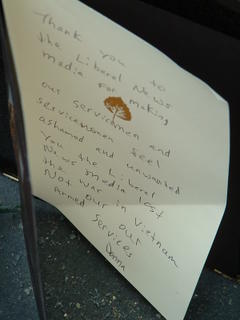 Thank you to
the Liberal News
media for making
our servicemen and
servicewomen feel
ashamed and unwanted
You the Liberal
News media lost
the war in Vietnam
Not our our
armed services
Donna